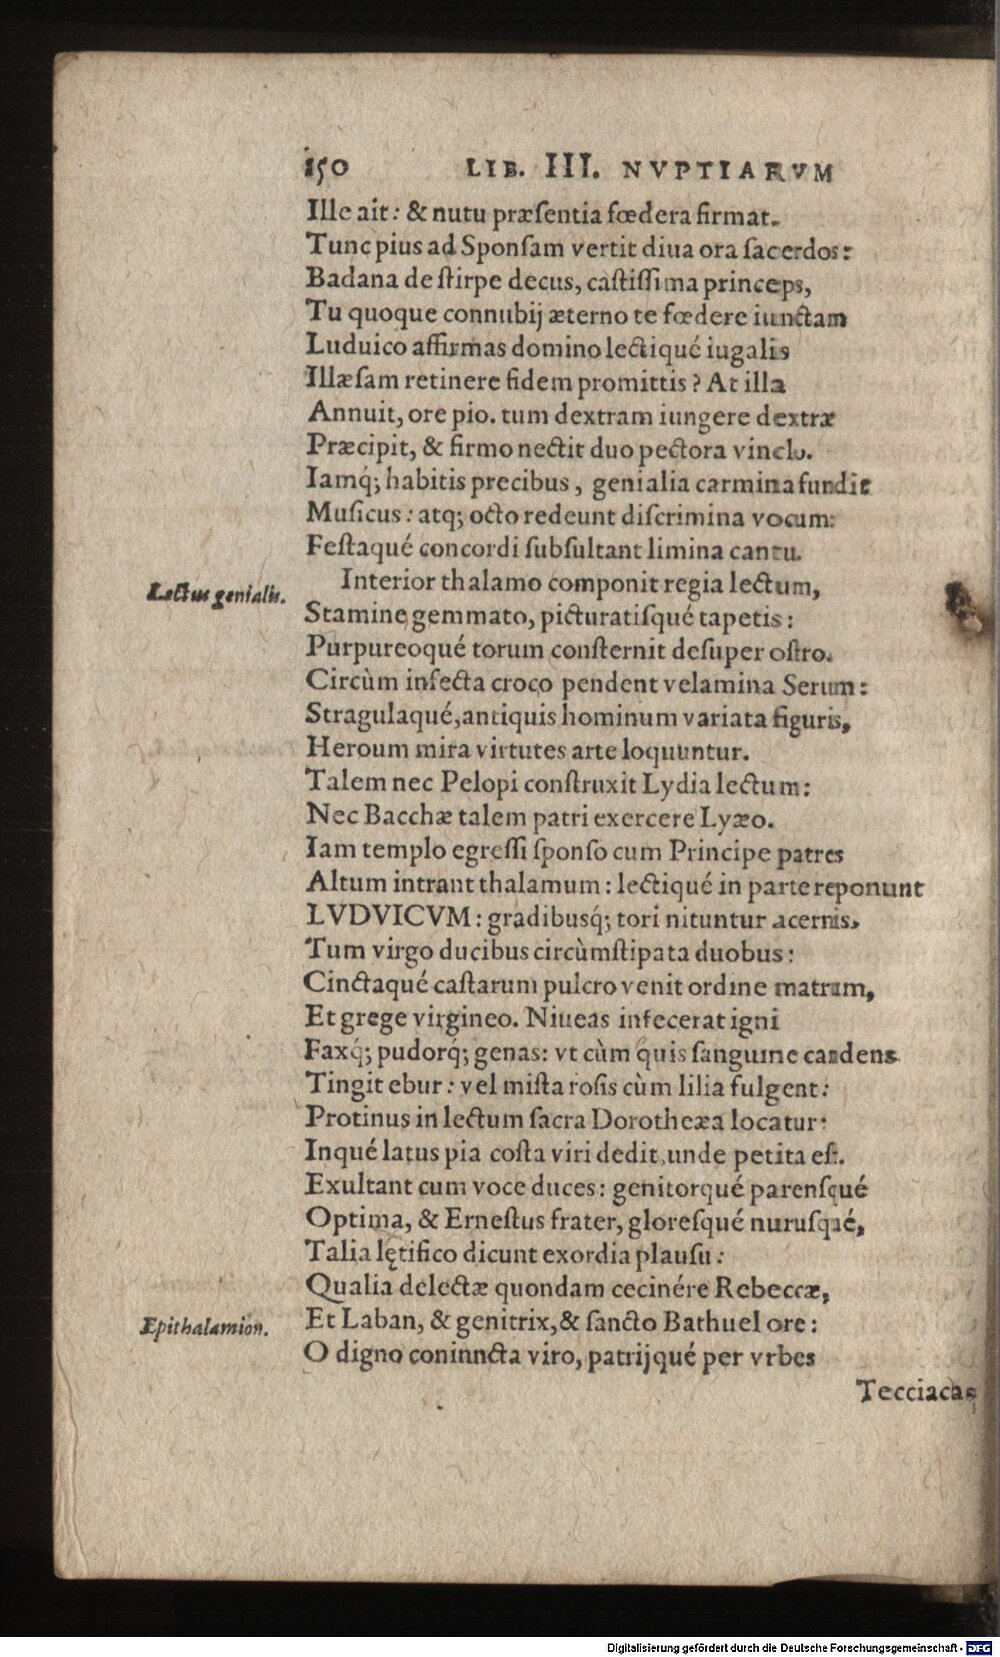 150 LIB. III. NVPTIARVM
Ille ait: & nutu præſentia fœdera firmat.
Tunc pius ad Sponſam vertit diua ora ſacerdos:
Badana de ſtirpe decus, caſtiſſima princeps,
Tu quoque connubij æterno te fœdere iunctam
Luduico affirmas domino lectiqué iugalis
Illæſam retinere fidem promittis? At illa
Annuit, ore pio. tum dextram iungere dextræ
Præcipit, & firmo nectit duo pectora vinclo.
Iamq́; habitis precibus, genialia carmina fundit
Muſicus: atq; octo redeunt diſcrimina vocum:
Feſtaqué concordi ſubſultant limina cantu.
Lectus genialis.
Interior thalamo componit regia lectum,
Stamine gemmato, picturatiſqué tapetis:
Purpureoqué torum conſternit deſuper oſtro.
Circùm infecta croco pendent velamina Serum:
Stragulaqué, antiquis hominum variata figuris,
Heroum mira virtutes arte loquuntur.
Talem nec Pelopi conſtruxit Lydia lectum:
Nec Bacchæ talem patri exercere Lyæo.
Iam templo egreſſi ſponſo cum Principe patres
Altum intrant thalamum: lectiqué in parte reponunt
LVDVICVM: gradibusq́; tori nituntur acernis.
Tum virgo ducibus circùmſtipata duobus:
Cinctaqué caſtarum pulcro venit ordine matrum,
Et grege virgineo. Niueas infecerat igni
Faxq́; pudorq́; genas: vt cùm quis ſanguine candens
Tingit ebur: vel miſta roſis cùm lilia fulgent:
Protinus in lectum ſacra Dorothæa locatur:
Inqué latus pia coſta viri dedit, unde petita eſt.
Exultant cum voce duces: genitorqué parenſqué
Optima, & Erneſtus frater, gloreſqué nuruſqué,
Talia lętifico dicunt exordia plauſu:
Qualia delectæ quondam cecinére Rebeccæ,
Epithalamion.
Et Laban, & genitrix, & ſancto Bathuel ore:
O digno coniuncta viro, patrijqué per vrbes
Tecciacas
Digitalisierung gefördert durch die Deutsche Forschungsgemeinschaft - DFG